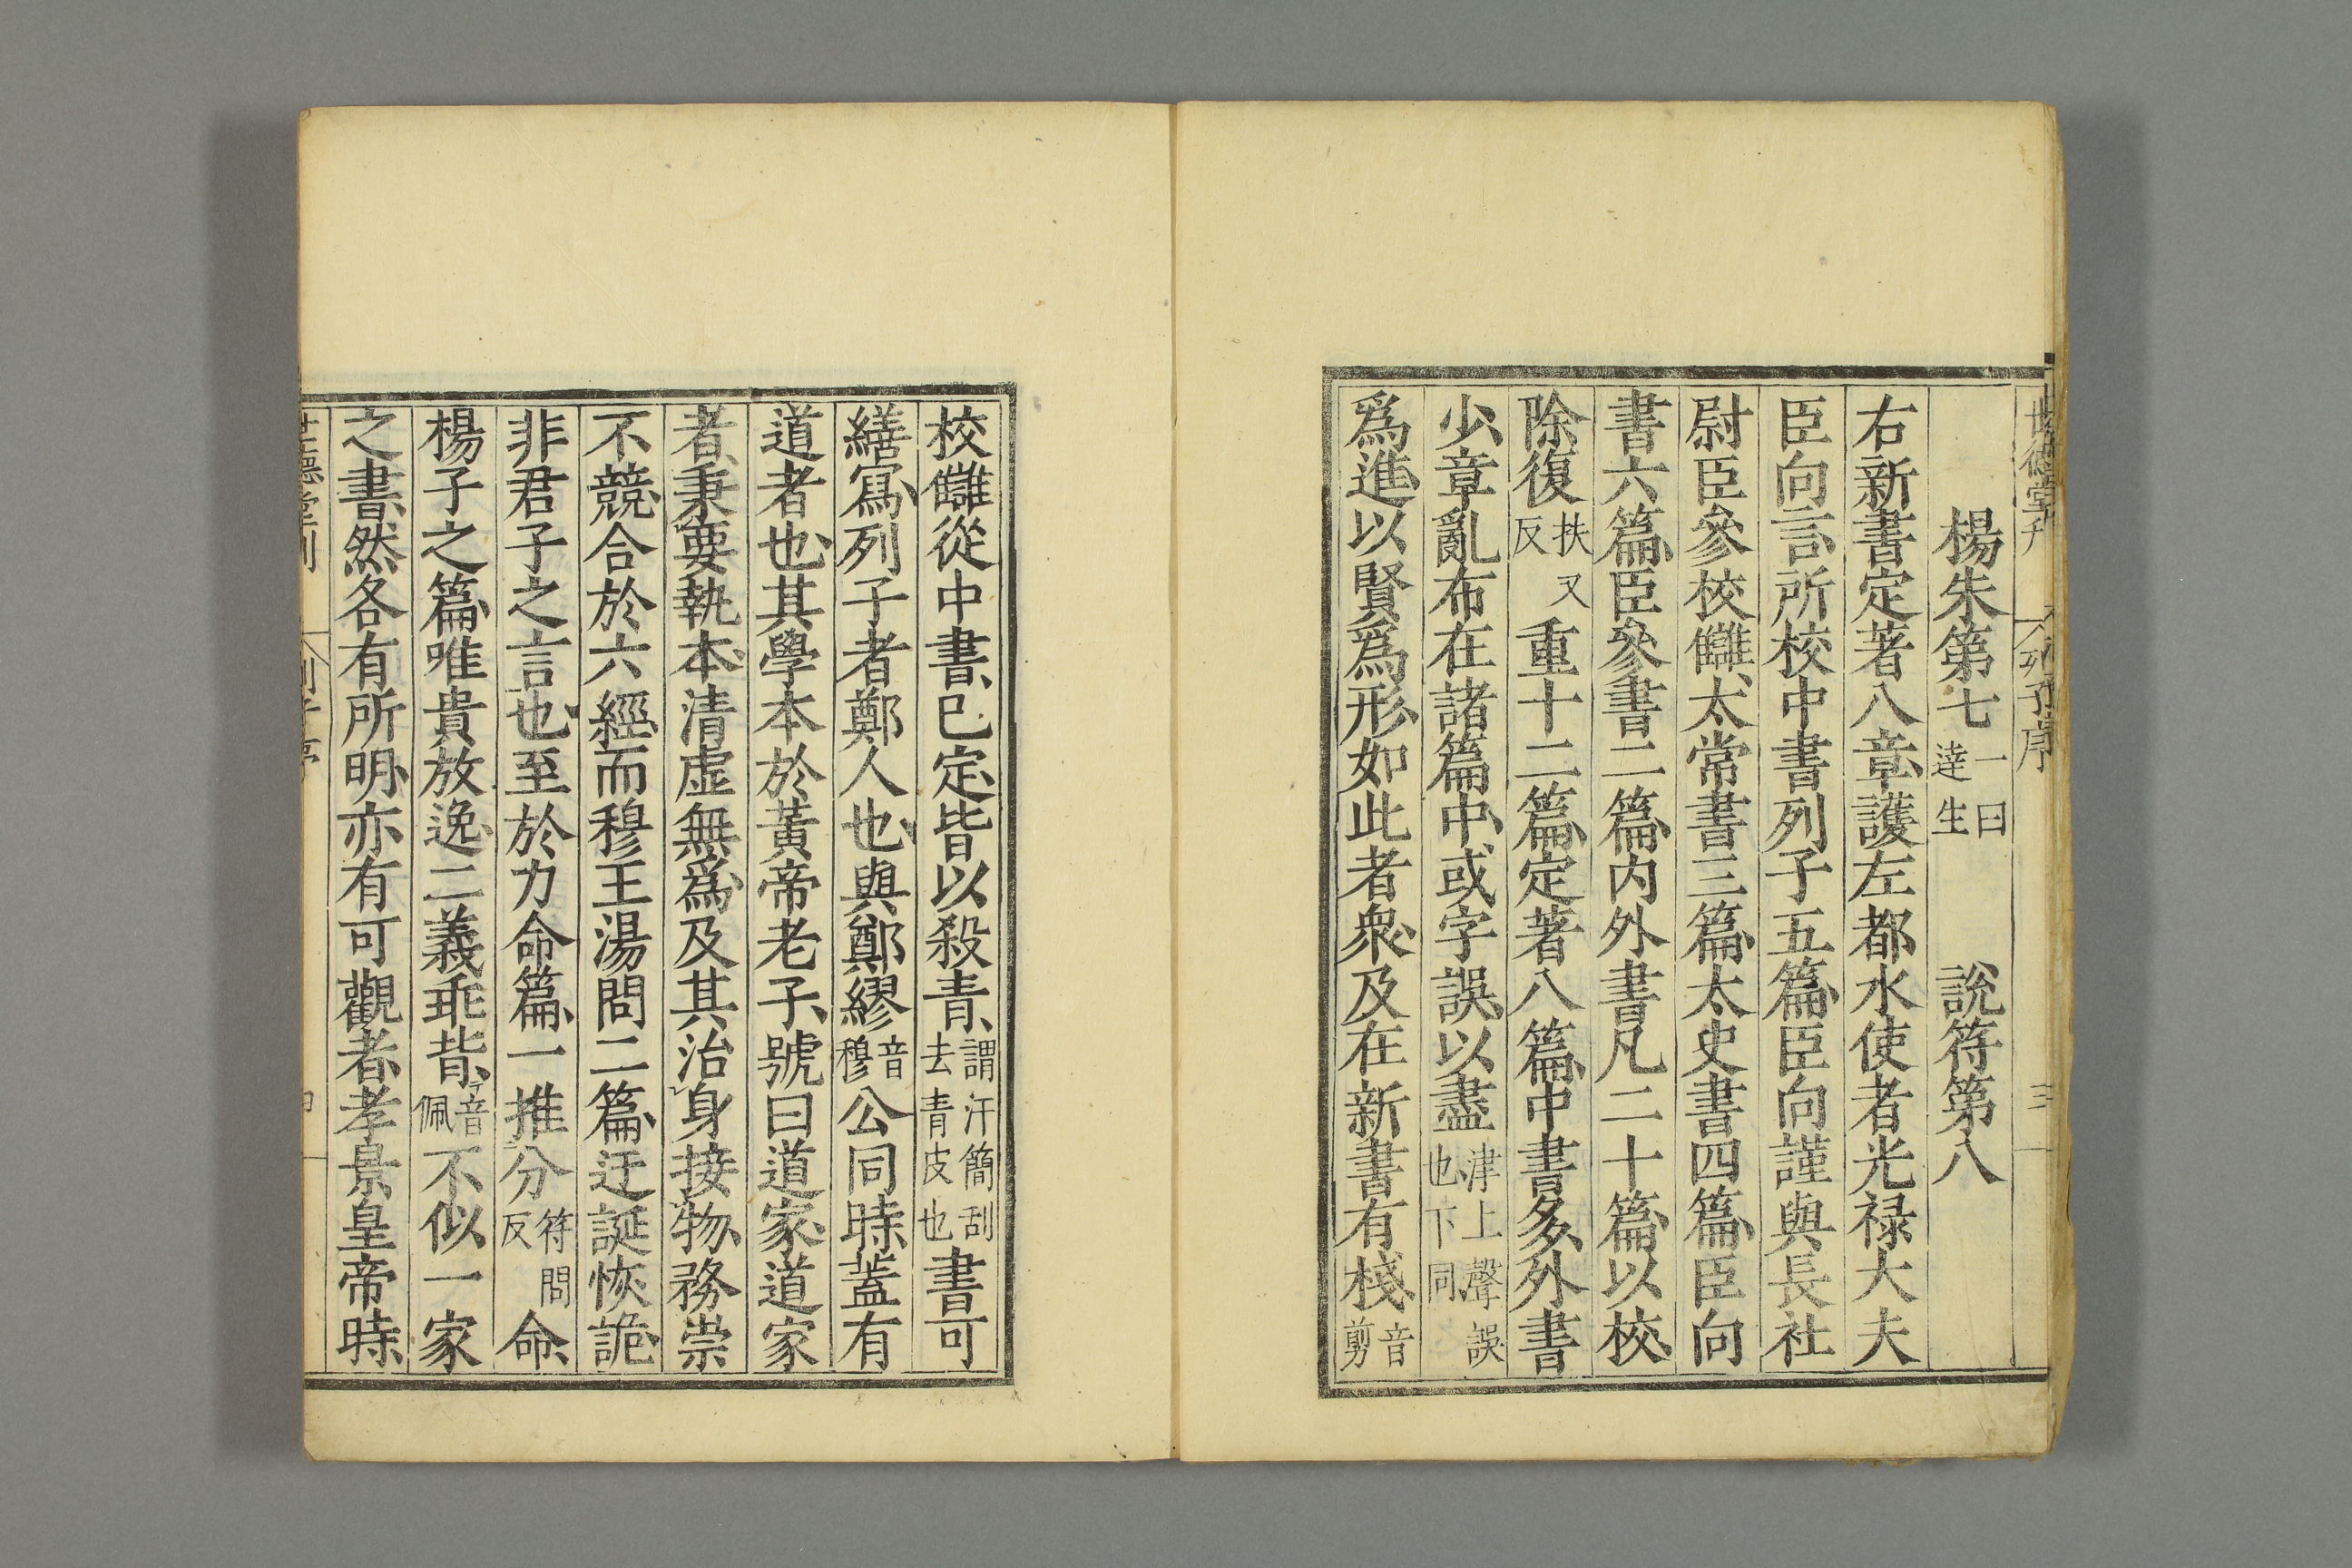 世德堂刊 列子序 三
楊朱第七一曰達生 說符第八
右新書定著八章護左都水使者光禄大夫
臣向言所校中書列子五篇臣向謹與長社
尉臣參校讎太常書三篇太史書四篇臣向
書六篇臣參書二篇内外書凡二十篇以校
除復扶又反重十二篇定著八篇中書多外書
少章亂布在諸篇中或字誤以盡津上聲誤也下同
爲進以賢爲形如此者衆及在新書有棧音剪
校讎從中書已定皆以殺青謂汗簡刮去青皮也書可
繕寫列子者鄭人也與鄭繆音穆公同時蓋有
道者也其學本於黃帝老子號曰道家道家
者秉要執本清虛無爲及其治身接物務崇
不競合於六經而穆王湯問二篇迂誕恢詭
非君子之言也至於力命篇一推分符問反命
楊子之篇唯貴放逸二義乖背音佩不似一家
之書然各有所明亦有可觀者孝景皇帝時